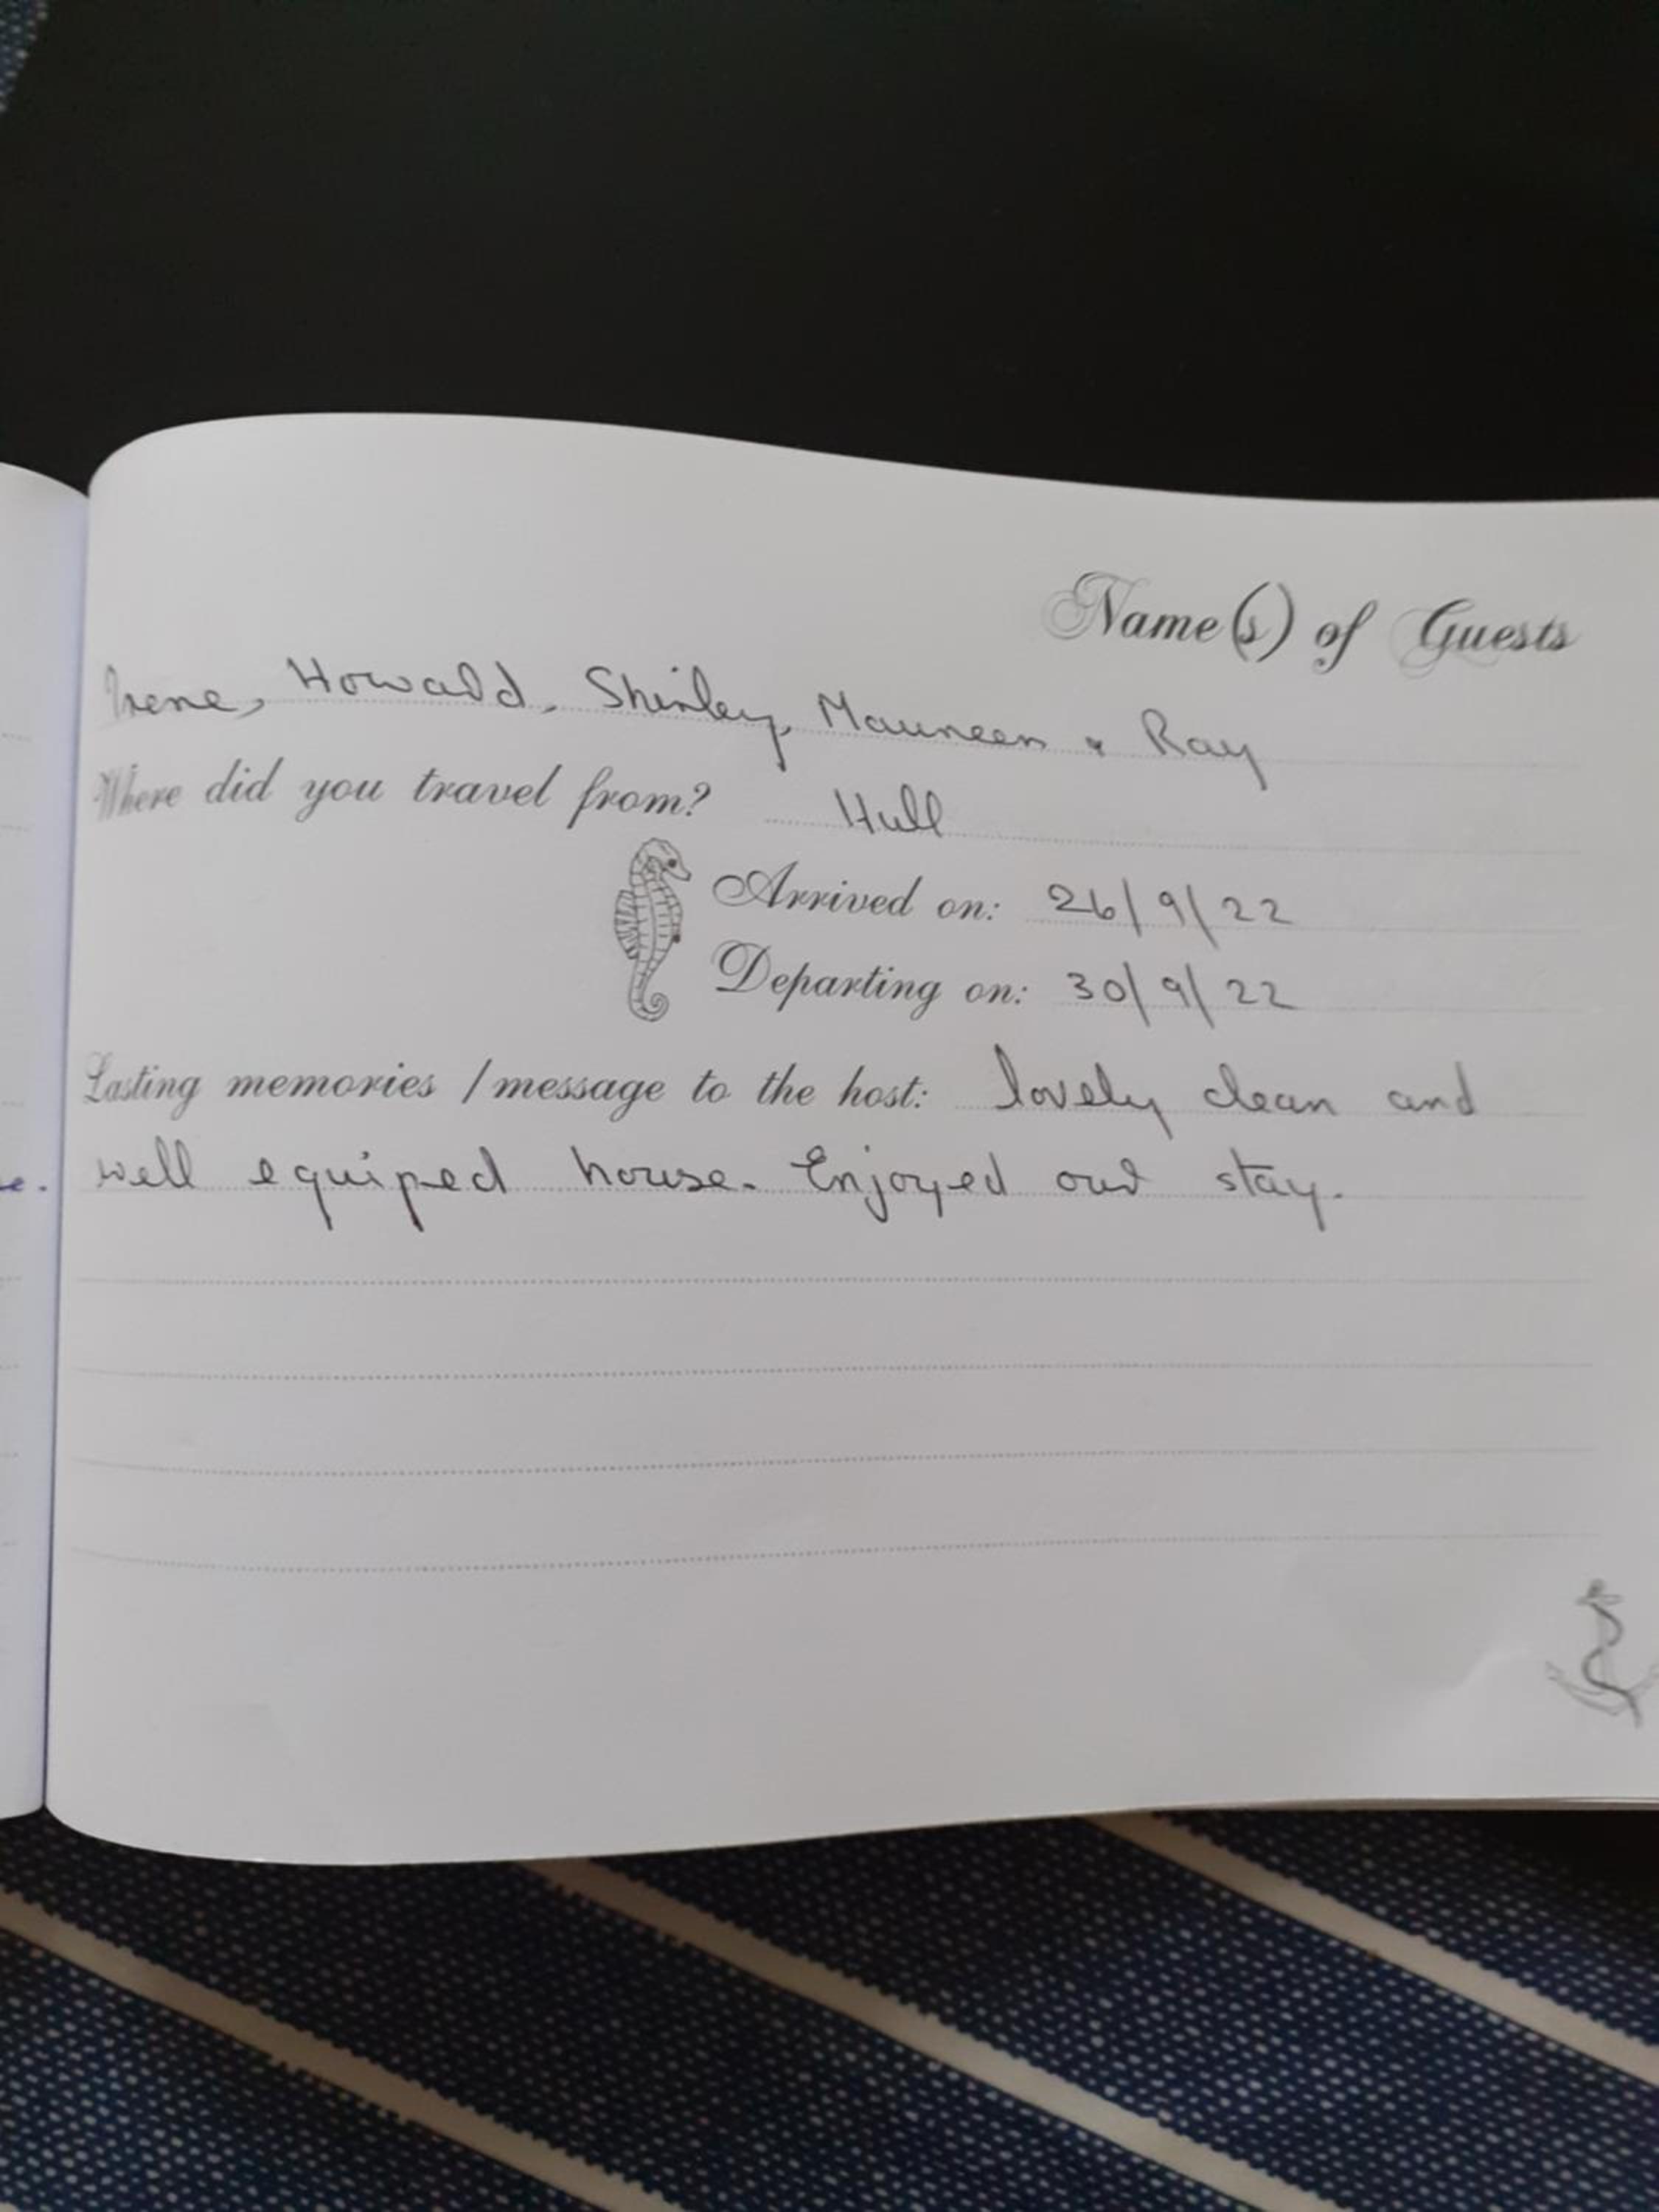 Name(s) of Guests
Irene, Howard, Shirley, Maureen & Ray
Where did you travel from? Hull
Arrived on: 26/9/22
Departing on: 30/9/22
Lasting memories / message to the host: lovely clean and
well equiped house. Enjoyed our stay.